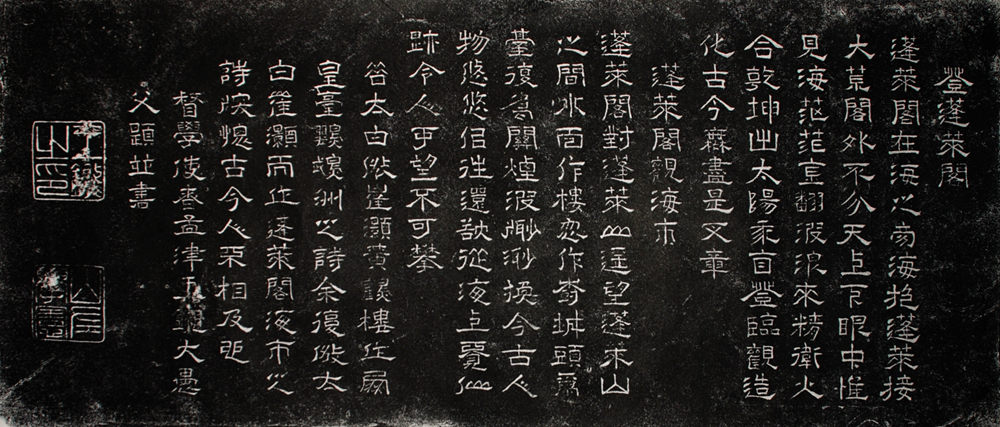 登蓬萊閣
蓬萊閣在海之南海抱蓬萊接
大荒閣外不分天上下眼中惟
見海茫茫亘翻波浪來精衛火
合乾坤出太陽百登臨觀造
化古今盡是文章
蓬萊閣觀海市
蓬萊閣對蓬萊山遥望蓬萊山
之間水面作樓忽作城頭爲
臺復爲闕煙波渺渺換今古人
物悠悠侣往還欲從海上覓仙
跡令人可望不可攀
昔太白俲崔灝黃鶴樓作鳳
皇臺鸚鵡洲之詩余復俲太
白崔灝而作蓬萊閣海市之
詩懷古今人果相及耶
督學使者孟津王鑨大愚
父題並書
王鑨之印